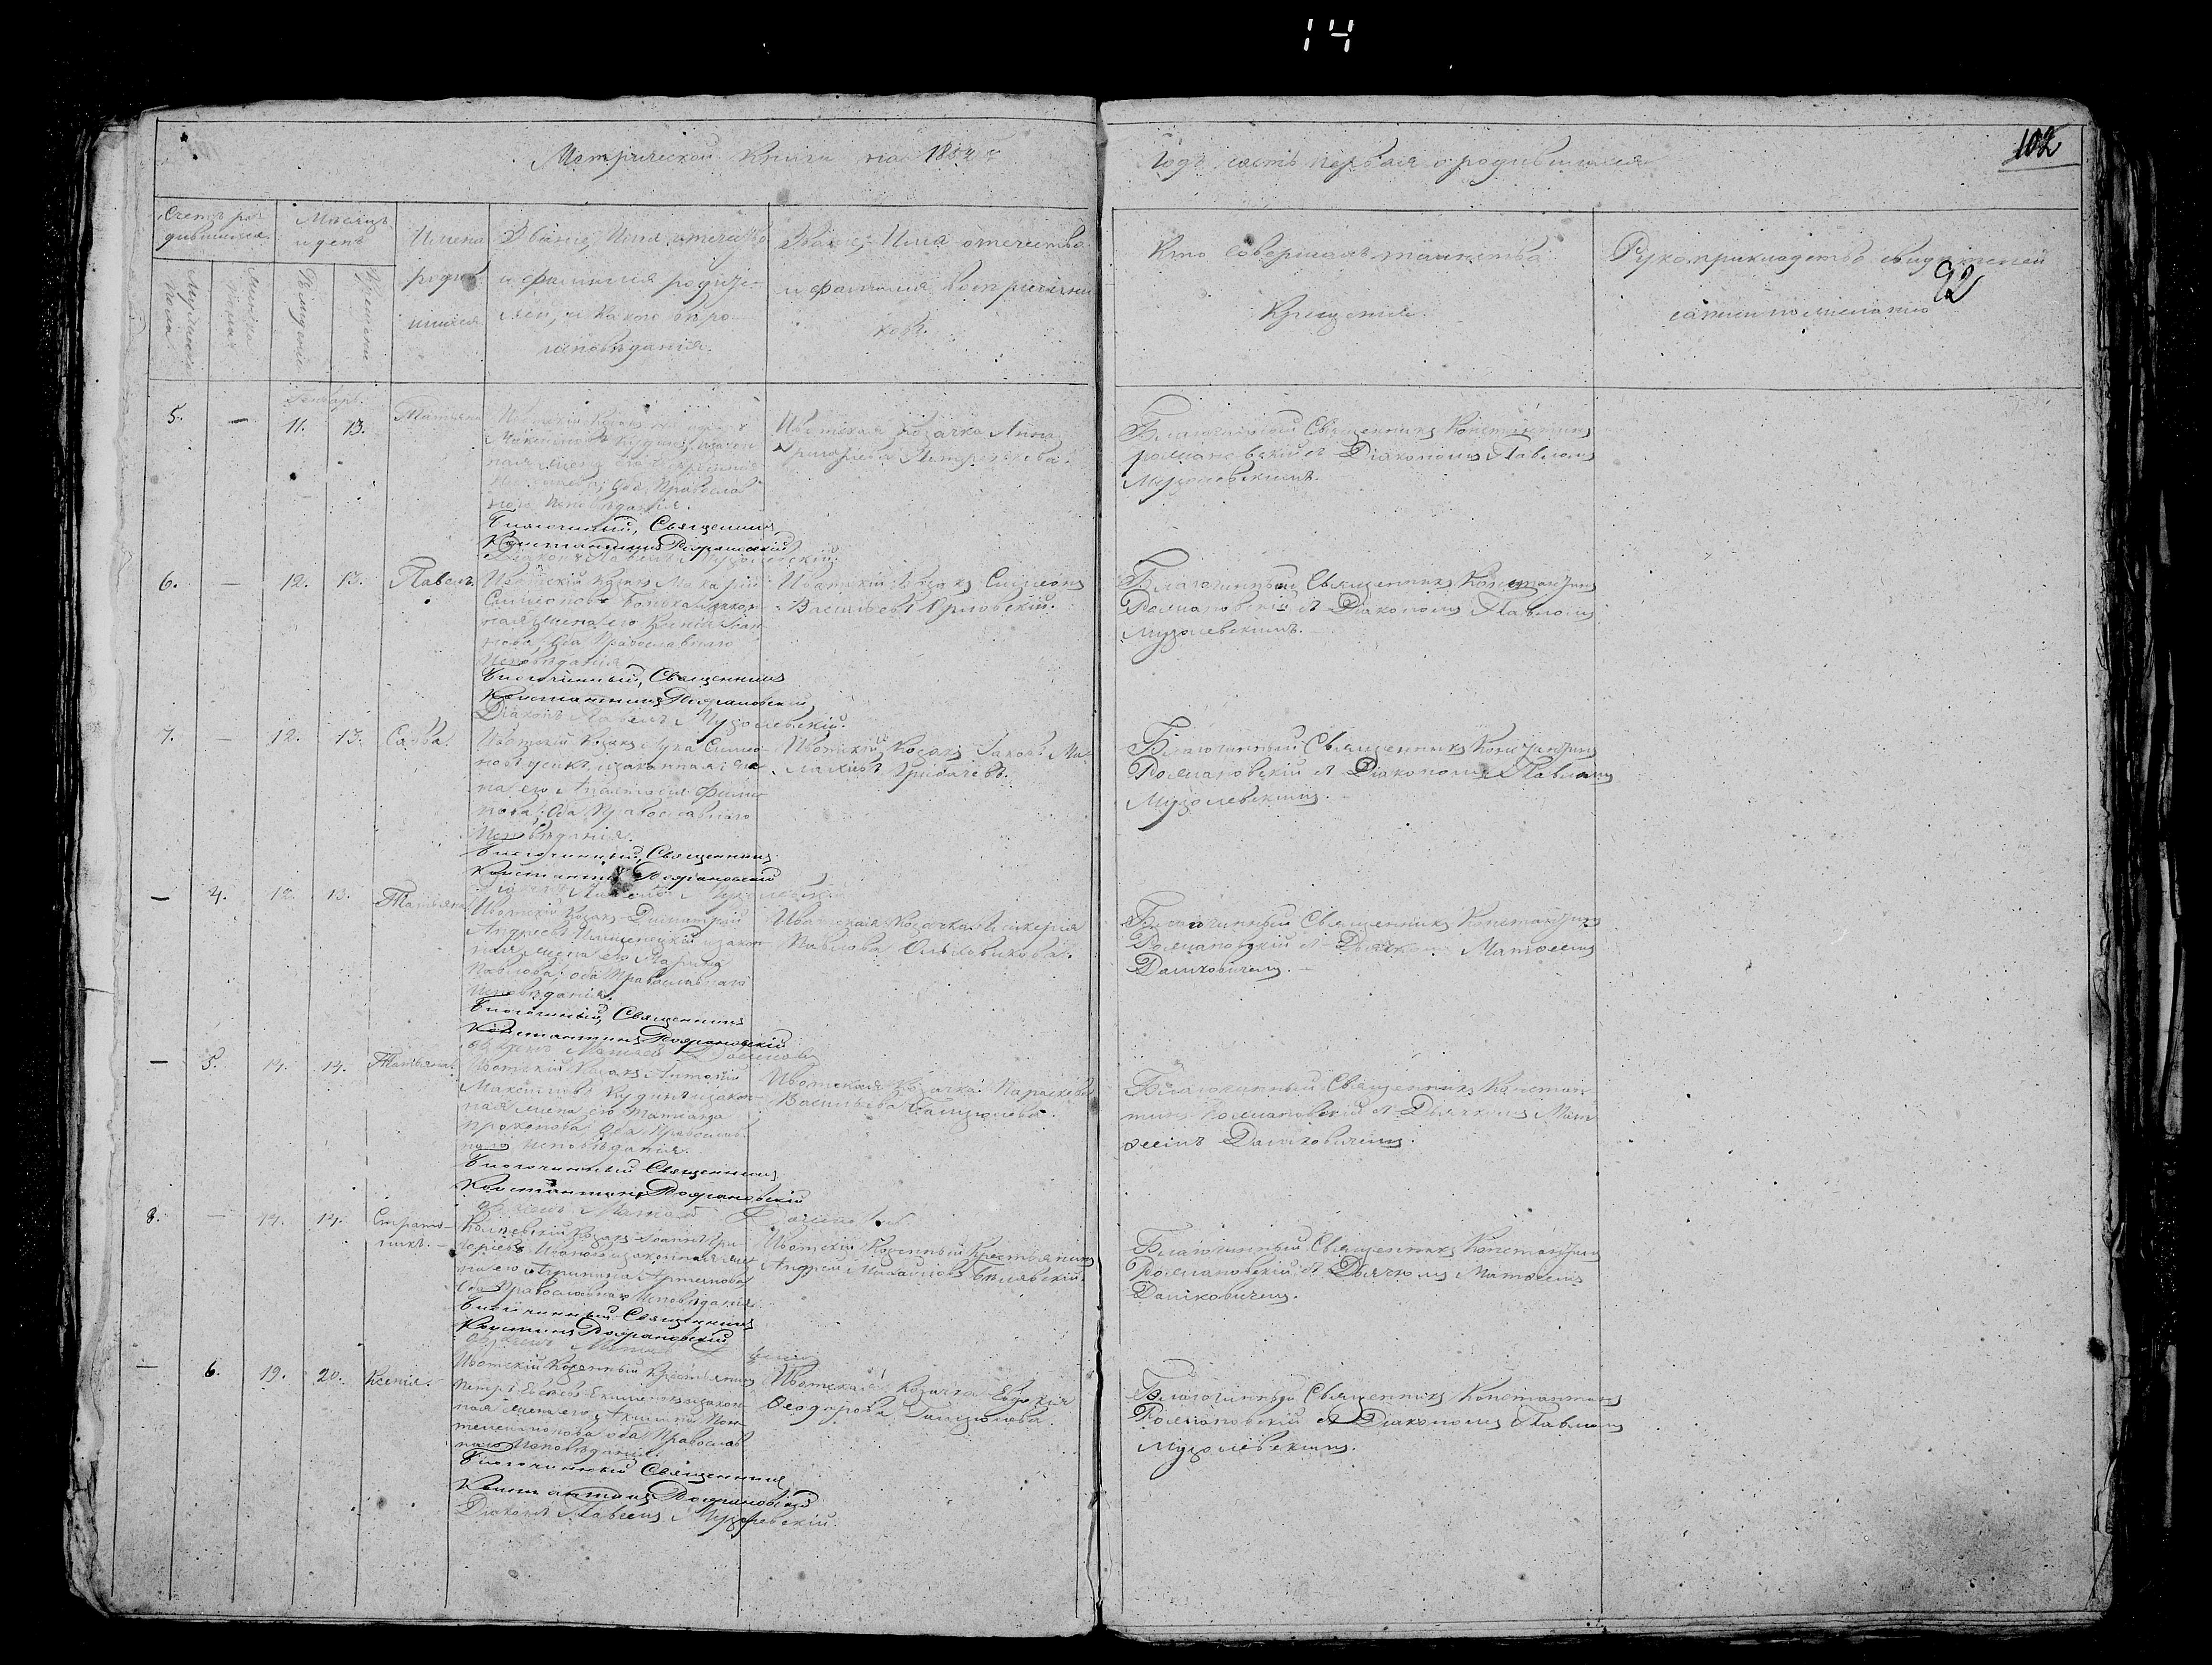 14
Метрической Книги на 185
Годъ часть первая о родившихся
102
Счетъ ро
дившихся.
Мѣсяцъ
и день
Имена
родив
шихся
Званіе, Имя, отчество
и фамилія родите-
лей, и какого вѣро-
исповѣданія.
Званіе, Имя отчество
и фамилія воспріемни
ковъ.
Кто совершалъ таинство
Крещенія.
Рукоприкладство свидѣтелей
записи по желанію
92
Мужеска
пола
Женска
пола
Рожденія
Крещенія
Генварь.
5. — 11. 13.
Козакъ
закон
ная жена его
Оба Правосла
наго Исповѣданія.
Благочинный, Священникъ
Константинъ Романовскій
Діаконъ Павелъ Музолевскій.
Ивотская козачка Анна
Григорьева
Благочинный Священникъ Константинъ
Романовскій съ Діакономъ Павломъ
Музолевскимъ.
6. — 12. 13. Павелъ.
Ивотскій Козакъ Макарій
Симеоновъ Бонька и закон
ная жена его Ксенія Іоан
нова, Оба Православнаго
Исповѣданія
Благочинный, Священникъ
Константинъ Романовскій
Діаконъ Павелъ Музолевскій.
Ивотскій Козакъ Симеонъ
Васильевъ Орловскій.
Благочинный Священникъ Константинъ
Романовскій съ Діакономъ Павломъ
Музолевскимъ.
7. — 12. 13. Савва.
Ивотскій Козакъ Лука Симео-
новъ Усикъ, и законная же
на его Анастасія Филип
пова, Оба Православнаго
Исповѣданія.
Благочинный, Священникъ
Константинъ Романовскій
Діаконъ Павелъ Музолевскій
Ивотскій Козакъ Іаковъ Ма-
лахіевъ Грибачевъ.
Благочинный Священникъ Константинъ
Романовскій съ Діакономъ Павломъ
Музолевскимъ.
— 4. 12. 13. Татьяна
Ивотскій Козакъ Димитрій
Андреевъ и закон-
ная жена его Марина
Павлова, оба Православнаго
Исповѣданія.
Благочинный, Священникъ
Константинъ Романовскій
Матѳей
Ивотская Козачка Гликерія
Павлова
Благочинный Священникъ Константинъ
Романовскій съ Дьячкомъ Матѳеемъ
Дашковичемъ.
— 5. 14. 14. Татьяна.
Ивотскій Козакъ Антоній
Максимовъ Кудинъ и закон-
ная жена его
Прокопова Оба Православ-
наго Исповѣданія.
Благочинный Священникъ
Константинъ Романовскій
Матѳей
Ивотская козачка Параскева
Васильева Гамзюлева.
Благочинный Священникъ Констан
тинъ Романовскій съ Дьячкомъ Мат
ѳеемъ Дашковичемъ.
8. — 14. 14. Страто-
никъ.
Козакъ Іоаннъ Гри
горіевъ и законная же
на его Агрипина Артемова
Оба Православнаго Исповѣданія
Благочинный Священникъ
Романовскій
Ивотскій Казенный Крестьянинъ
Андрей Михайловъ Бѣлявскій.
Благочинный Священникъ Константинъ
Романовскій съ Дьячкомъ Матѳеемъ
Дашковичемъ.
— 6. 19. 20. Ксенія.
Ивотскій Казенный Крестьянинъ
Петръ и закон
ная жена его Акилина Пан
телеимонова оба Православ
наго Исповѣданія.
Благочинный Священникъ
Константинъ Романовскій
Діаконъ Павелъ Музолевскій.
Ивотская Козачка Евдокія
Ѳеодорова Гамзюлева.
Благочинный Священникъ Константинъ
Романовскій съ Діакономъ Павломъ
Музолевскимъ.